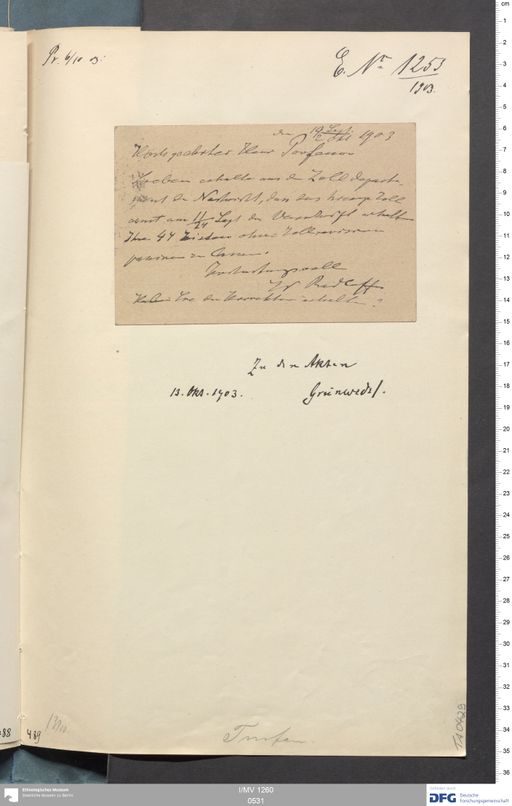 Pr. 6/10 03.
E. No 1253
1903.
den 19 Sept. 1903
2 Okt
Hochgeehrter Herr Professor
Soeben erhalte aus dem Zolldeparte-
ment die Nachricht, dass das Zoll
amt am 11/24 Sept die Vorschrift erhielt
Ihre 44 Kisten ohne Zollrevision
passiren zu lassen.
Hochachtungsvoll
W Radloff
Haben Sie die Korrektur erhalten?
Zu den Akten
13. Okt. 1903. Grünwedel.
488
489
Turfan
TA 0423
Ethnologisches Museum
Staatliche Museen zu Berlin
I/MV 1260
0531
DFG Deutsche
Forschungsgemeinschaft
cm
1
2
3
4
5
6
7
8
9
10
11
12
13
14
15
16
17
18
19
20
21
22
23
24
25
26
27
28
29
30
31
32
33
34
35
36